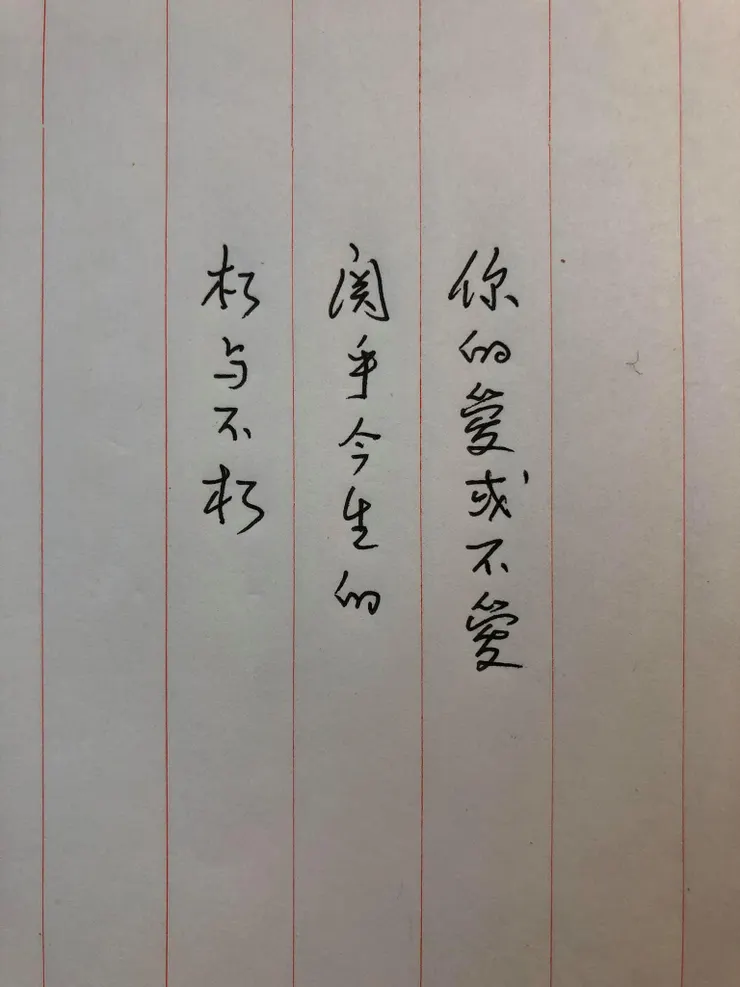 你的爱或不爱
关乎今生的
朽与不朽